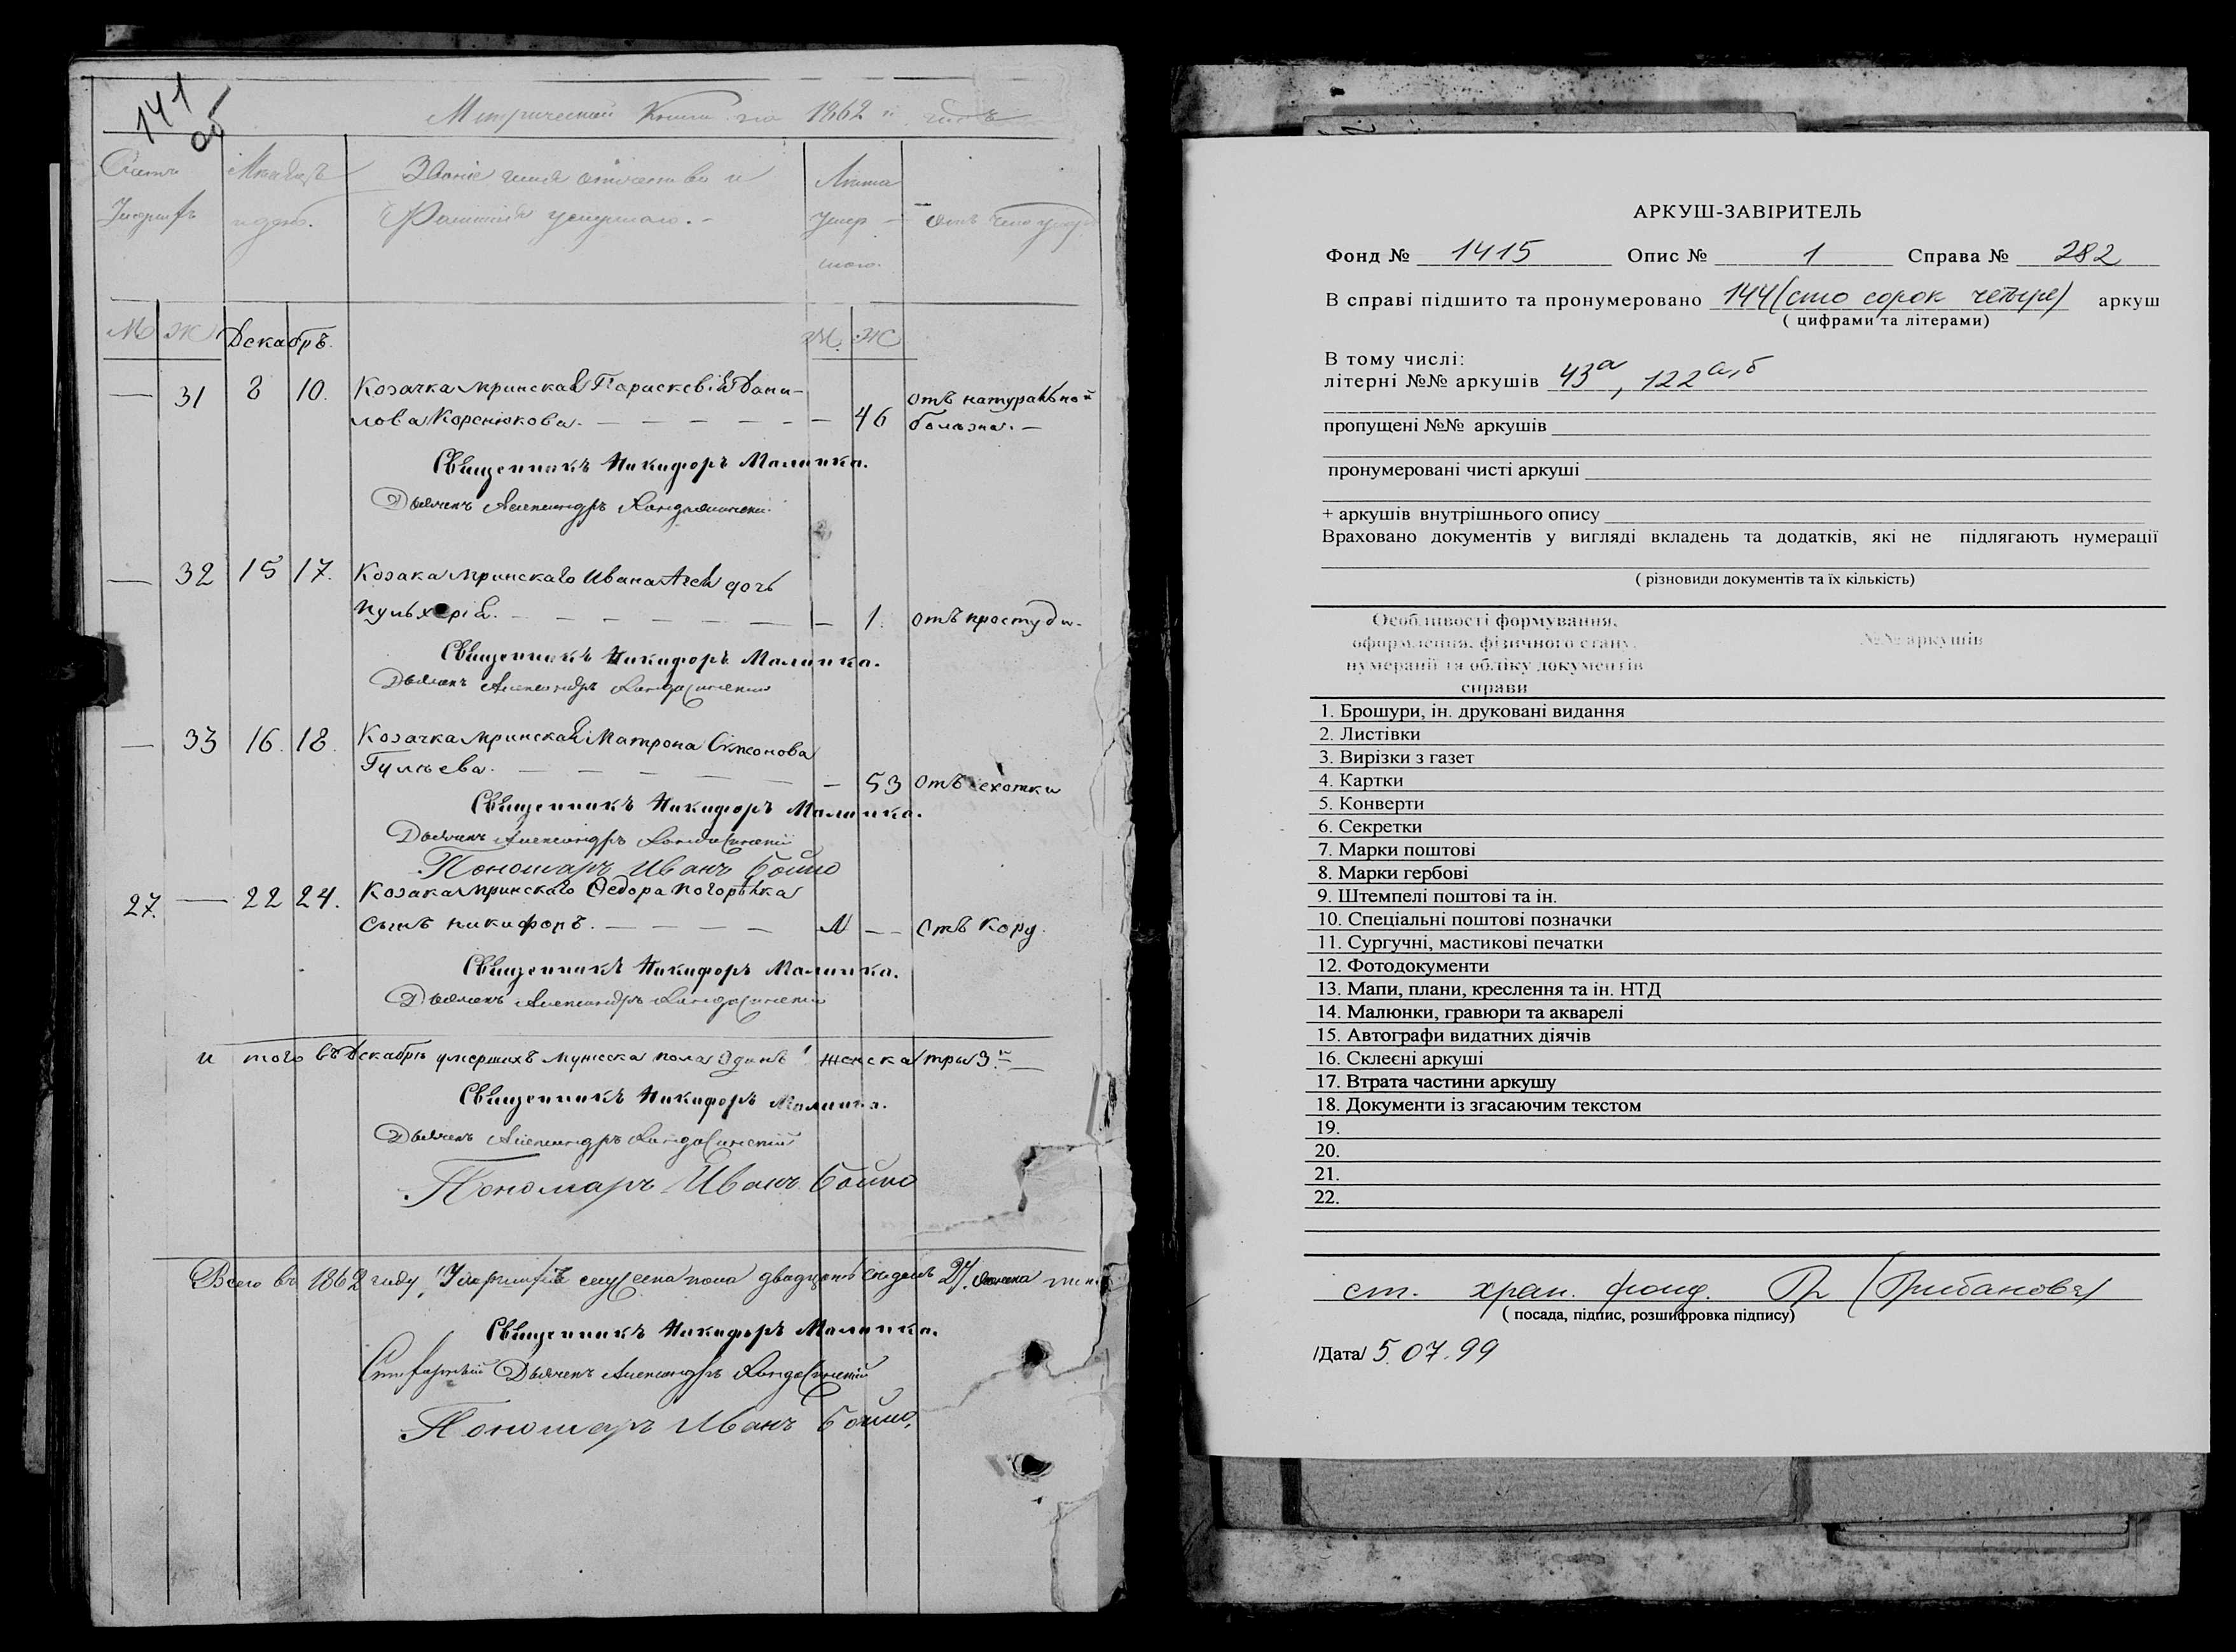 141
об
Метрической Книги на 1862 й годъ
Счетъ Мѣсяцъ Званіе имя отечество и Лѣта
и день. Фамилія умершаго. – Умер – отъ чего
шаго.
М Ж Декабрь. М. Ж
— 31 8 10. Козачка Мринская Параскевія Дани-
лова Корснюкова. — — — — — — 46 отъ натуральной болезна. —
Священникъ Никифоръ Малинка.
Дьячекъ Александръ
— 32 15 17. Козака Мринскаго Ивана дочь
Пульхерія. — — — — — — — 1. отъ простуди.
Священникъ Никифоръ Малинка.
Дьячекъ Александръ
— 33 16. 18. Козачка Мринская Матрона
Гулѣева. — — — — — — 53 отъ сухотки
Священникъ Никифоръ Малинка.
Дьячекъ Александръ
Пономарь Иванъ Бойко
27. — 22 24. Козака Мринскаго Федора Погорѣлка
сынъ Никифоръ. — — — — — Отъ Кору.
Священникъ Никифоръ Малинка.
Дьячекъ Александръ
и того въ Декабрѣ умершихъ мужеска пола Одинъ 1 женска три 3.
Священникъ Никифоръ Малинка.
Дьячекъ Александръ
Пономарь Иванъ Бойко
Всего въ 1862 году, Умершихъ мужеска пола двадцать семь 27. женска
Священникъ Никифоръ Малинка.
Дьячекъ Александръ
Пономарь Иванъ Бойко,
АРКУШ-ЗАВІРИТЕЛЬ
Фонд № 1415 Опис № 1 Справа № 282
В справі підшито та пронумеровано 144 (сто сорок четыре) аркуш
( цифрами та літерами)
В тому числі:
літерні №№ аркушів 43а, 122а,б
пропущені №№ аркушів
пронумеровані чисті аркуші
+ аркушів внутрішнього опису
Враховано документів у вигляді вкладень та додатків, які не підлягають нумерації
( різновиди документів та їх кількість)
Особливості формування,
оформлення, фізичного стану, №№ аркушів
нумерації та обліку документів
справи
1. Брошури, ін. друковані видання
2. Листівки
3. Вирізки з газет
4. Картки
5. Конверти
6. Секретки
7. Марки поштові
8. Марки гербові
9. Штемпелі поштові та ін.
10. Спеціальні поштові позначки
11. Сургучні, мастикові печатки
12. Фотодокументи
13. Мапи, плани, креслення та ін. НТД
14. Малюнки, гравюри та акварелі
15. Автографи видатних діячів
16. Склеєні аркуші
17. Втрата частини аркушу
18. Документи із згасаючим текстом
19.
20.
21.
22.
ст. хран. фонд.
( посада, підпис, розшифровка підпису)
/Дата/ 5.07.99